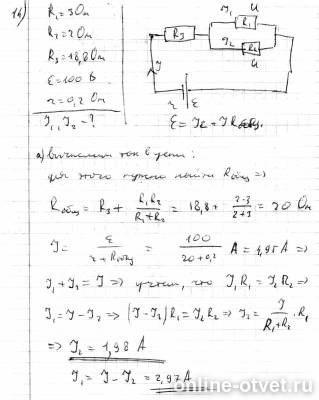 14)
R₁ = 3 Ом
R₂ = 2 Ом
R₃ = 18,8 Ом
ε = 100 В
r = 0,2 Ом
I₁, I₂ - ?
I₁ R₁ U
R₃
I₂ R₂ U
I
r ε
ε = Ir + IRобщ.
а) вычислим ток в цепи:
для этого нужно найти Rобщ =>
Rобщ = R₃ + R₁R₂/(R₁+R₂) = 18,8 + 2·3/(2+3) = 20 Ом
I = ε/(r+Rобщ) = 100/(20+0,2) A = 4,95 A =>
I₁ + I₂ = I => учтем, что I₁R₁ = I₂R₂ =>
I₁ = I - I₂ => (I - I₂)R₁ = I₂R₂ => I₂ = I/(R₁+R₂) · R₁
=> I₂ = 1,98 A
I₁ = I - I₂ = 2,97 A
online-otvet.ru